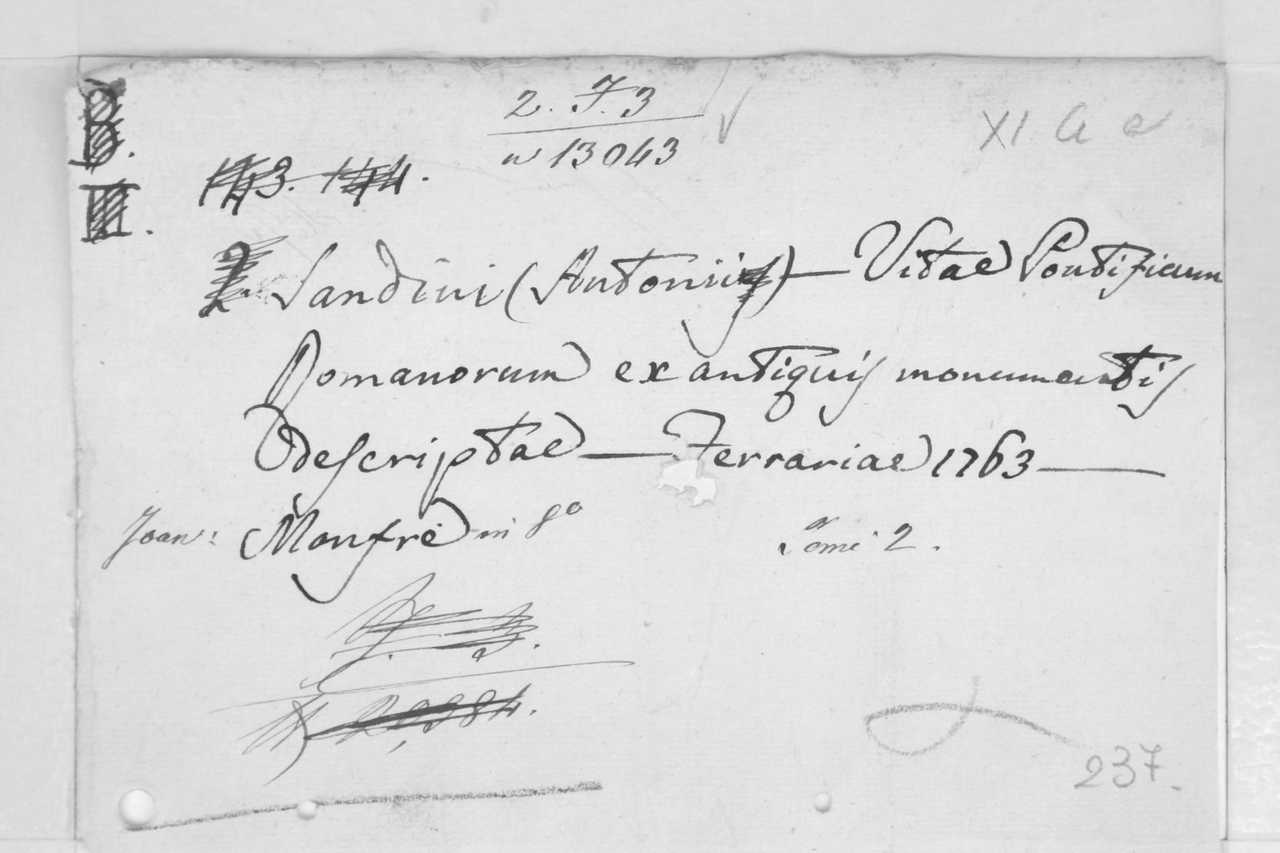 2. F. 3
n 13043
XI a
B.
II.
143. 144.
Sandini (Antonii) — Vitae Pontificum
Romanorum ex antiquis monumentis
descriptae — Ferrariae 1763 —
Joan: Manfrè in 8º Tomi 2.
237.